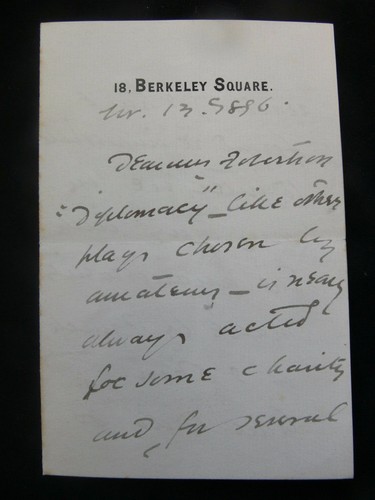 18, BERKELEY SQUARE.
Nov. 13. 1896.
Dear Miss Robertson
"Diplomacy" – like other
plays chosen by
amateurs – is nearly
always acted
for some charity
and for several